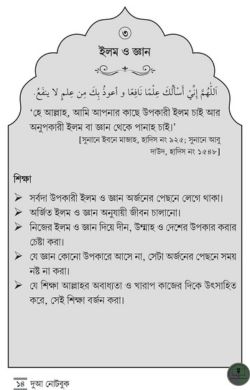 ৩
ইলম ও জ্ঞান
اَللّٰهُمَّ إِنِّيْ أَسْأَلُكَ عِلْمًا نَافِعًا وَ أَعوذُ بِكَ مِن عِلمٍ لا ينفَعُ.
‘হে আল্লাহ, আমি আপনার কাছে উপকারী ইলম চাই আর
অনুপকারী ইলম বা জ্ঞান থেকে পানাহ চাই।’
[সুনানে ইবনে মাজাহ, হাদিস নং ৯২৫; সুনানে আবু
দাউদ, হাদিস নং ১৫৪৮]
শিক্ষা
➢ সর্বদা উপকারী ইলম ও জ্ঞান অর্জনের পেছনে লেগে থাকা।
➢ অর্জিত ইলম ও জ্ঞান অনুযায়ী জীবন চালানো।
➢ নিজের ইলম ও জ্ঞান দিয়ে দীন, উম্মাহ ও দেশের উপকার করার
চেষ্টা করা।
➢ যে জ্ঞান কোনো উপকারে আসে না, সেটা অর্জনের পেছনে সময়
নষ্ট না করা।
➢ যে শিক্ষা আল্লাহর অবাধ্যতা ও খারাপ কাজের দিকে উৎসাহিত
করে, সেই শিক্ষা বর্জন করা।
১৪ দুআ নোটবুক